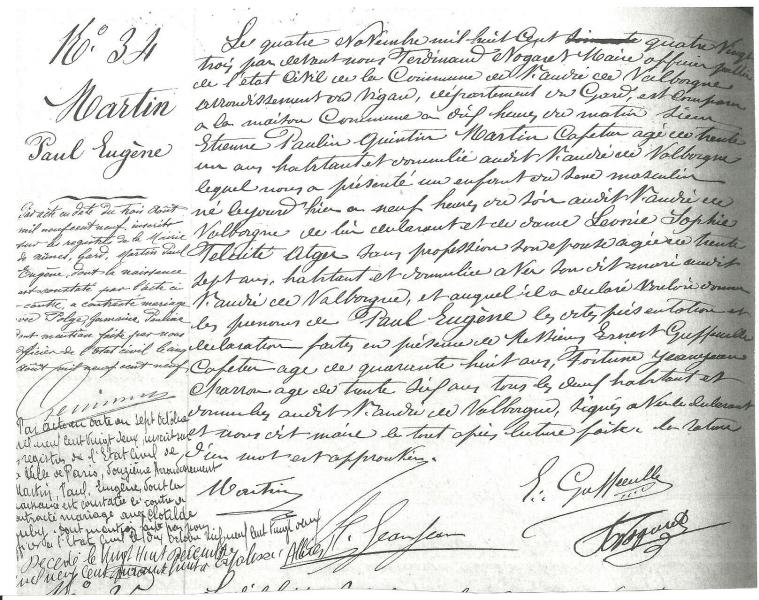 N.º 34
Martin
Paul Eugène
Par acte en date du trois Août
mil neuf cent neuf, inscrit
sur le registre de la Mairie
de Nîmes, Gard, Martin Paul
Eugène, dont la naissance
est constatée par l'acte ci-
contre, a contracté mariage
avec Polge Pauline
dont mention faite par nous
officier de l'état civil le cinq
Août mil neuf cent neuf
Par acte en date du sept Octobre
mil neuf cent vingt deux inscrit sur
registre de l'Etat Civil de
la Ville de Paris, douzième arrondissement
Martin, Paul, Eugène, dont la
naissance est constatée ci contre a
contracté mariage avec Clotilde
dont mention faite par nous
officier de l'Etat Civil le dix Octobre mil neuf cent vingt deux
Décédé le vingt huit Décembre
mil neuf cent quarante huit à
Le quatre Novembre mil huit Cent soixante quatre Vingt
trois par devant nous Ferdinand Nogaret Maire officier public
de l'état Civil de la Commune de St André de Valborgne
arrondissement du Vigan, département du Gard, est Comparu
a la maison Commune a dix heures du matin Sieur
Etienne Paulin Quintin Martin Cafetier agé de trente
un ans habitant et domicilié audit St André de Valborgne
lequel nous a présenté un enfant du sexe masculin
né le jour d'hier a neuf heures du soir audit St André de
Valborgne de lui declarant et de dame Léonie Sophie
Félicité Atger sans profession son epouse agée de trente
sept ans, habitant et domiciliée avec son dit mari audit
St André de Valborgne, et auquel il a declaré vouloir donner
les prenoms de Paul Eugène les dites présentation et
declaration faites en présence de Messieurs Ernest
Cafetier age de quarante huit ans, Fortuné Jeanjean
Charron age de trente six ans tous les deux habitant et
domiciliés audit St André de Valborgne, signés avec le declarant
et nous dit maire le tout après lecture faite. la rature
d'un mot est approuvée.
Martin
F. Jeanjean
Nogaret